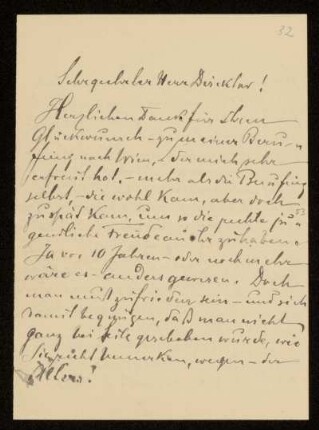 82
Sehr geehrter Herr Direktor!
Herzlichen Dank für Ihren
Glückwunsch - zu meiner Beru-
fung nach Wien, - der mich sehr
gefreut hat, - mehr als die Berufung
selbst, - die wohl kam, aber doch
zu spät kam, um so die rechte ju-
gendliche Freude an ihr zu haben.
Ja vor 10 Jahren - oder noch mehr
wäre es - anders gewesen. Doch
man muß zufrieden sein - und sich
damit begnügen, daß man nicht
ganz bei Seite geschoben wurde, wie
Sie richt bemerken, wegen - der